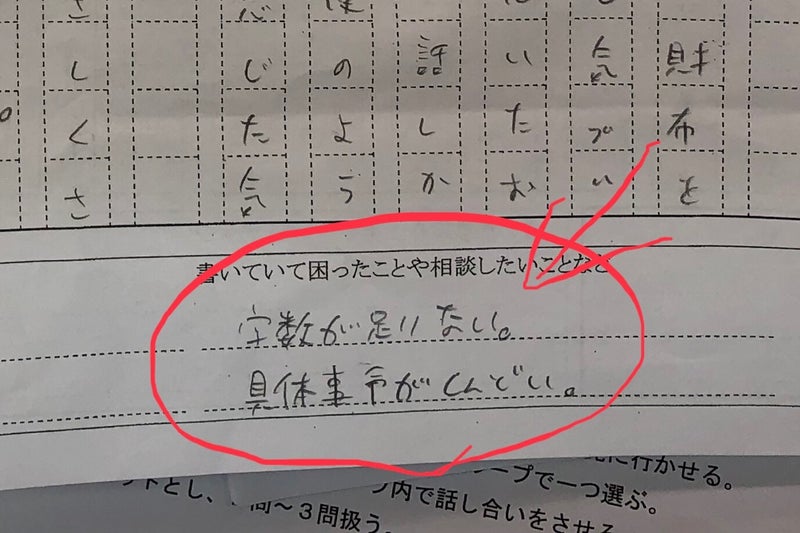 財布を
気づい
いたお
話しか
のよう
じた気
さしくさ
書いていて困ったことや相談したいことなど
字数が足りない。
具体事予がしんどい。
に行かせる。
ープで一つ選ぶ。
内で話し合いをさせる
トとし、
問～３問扱う。